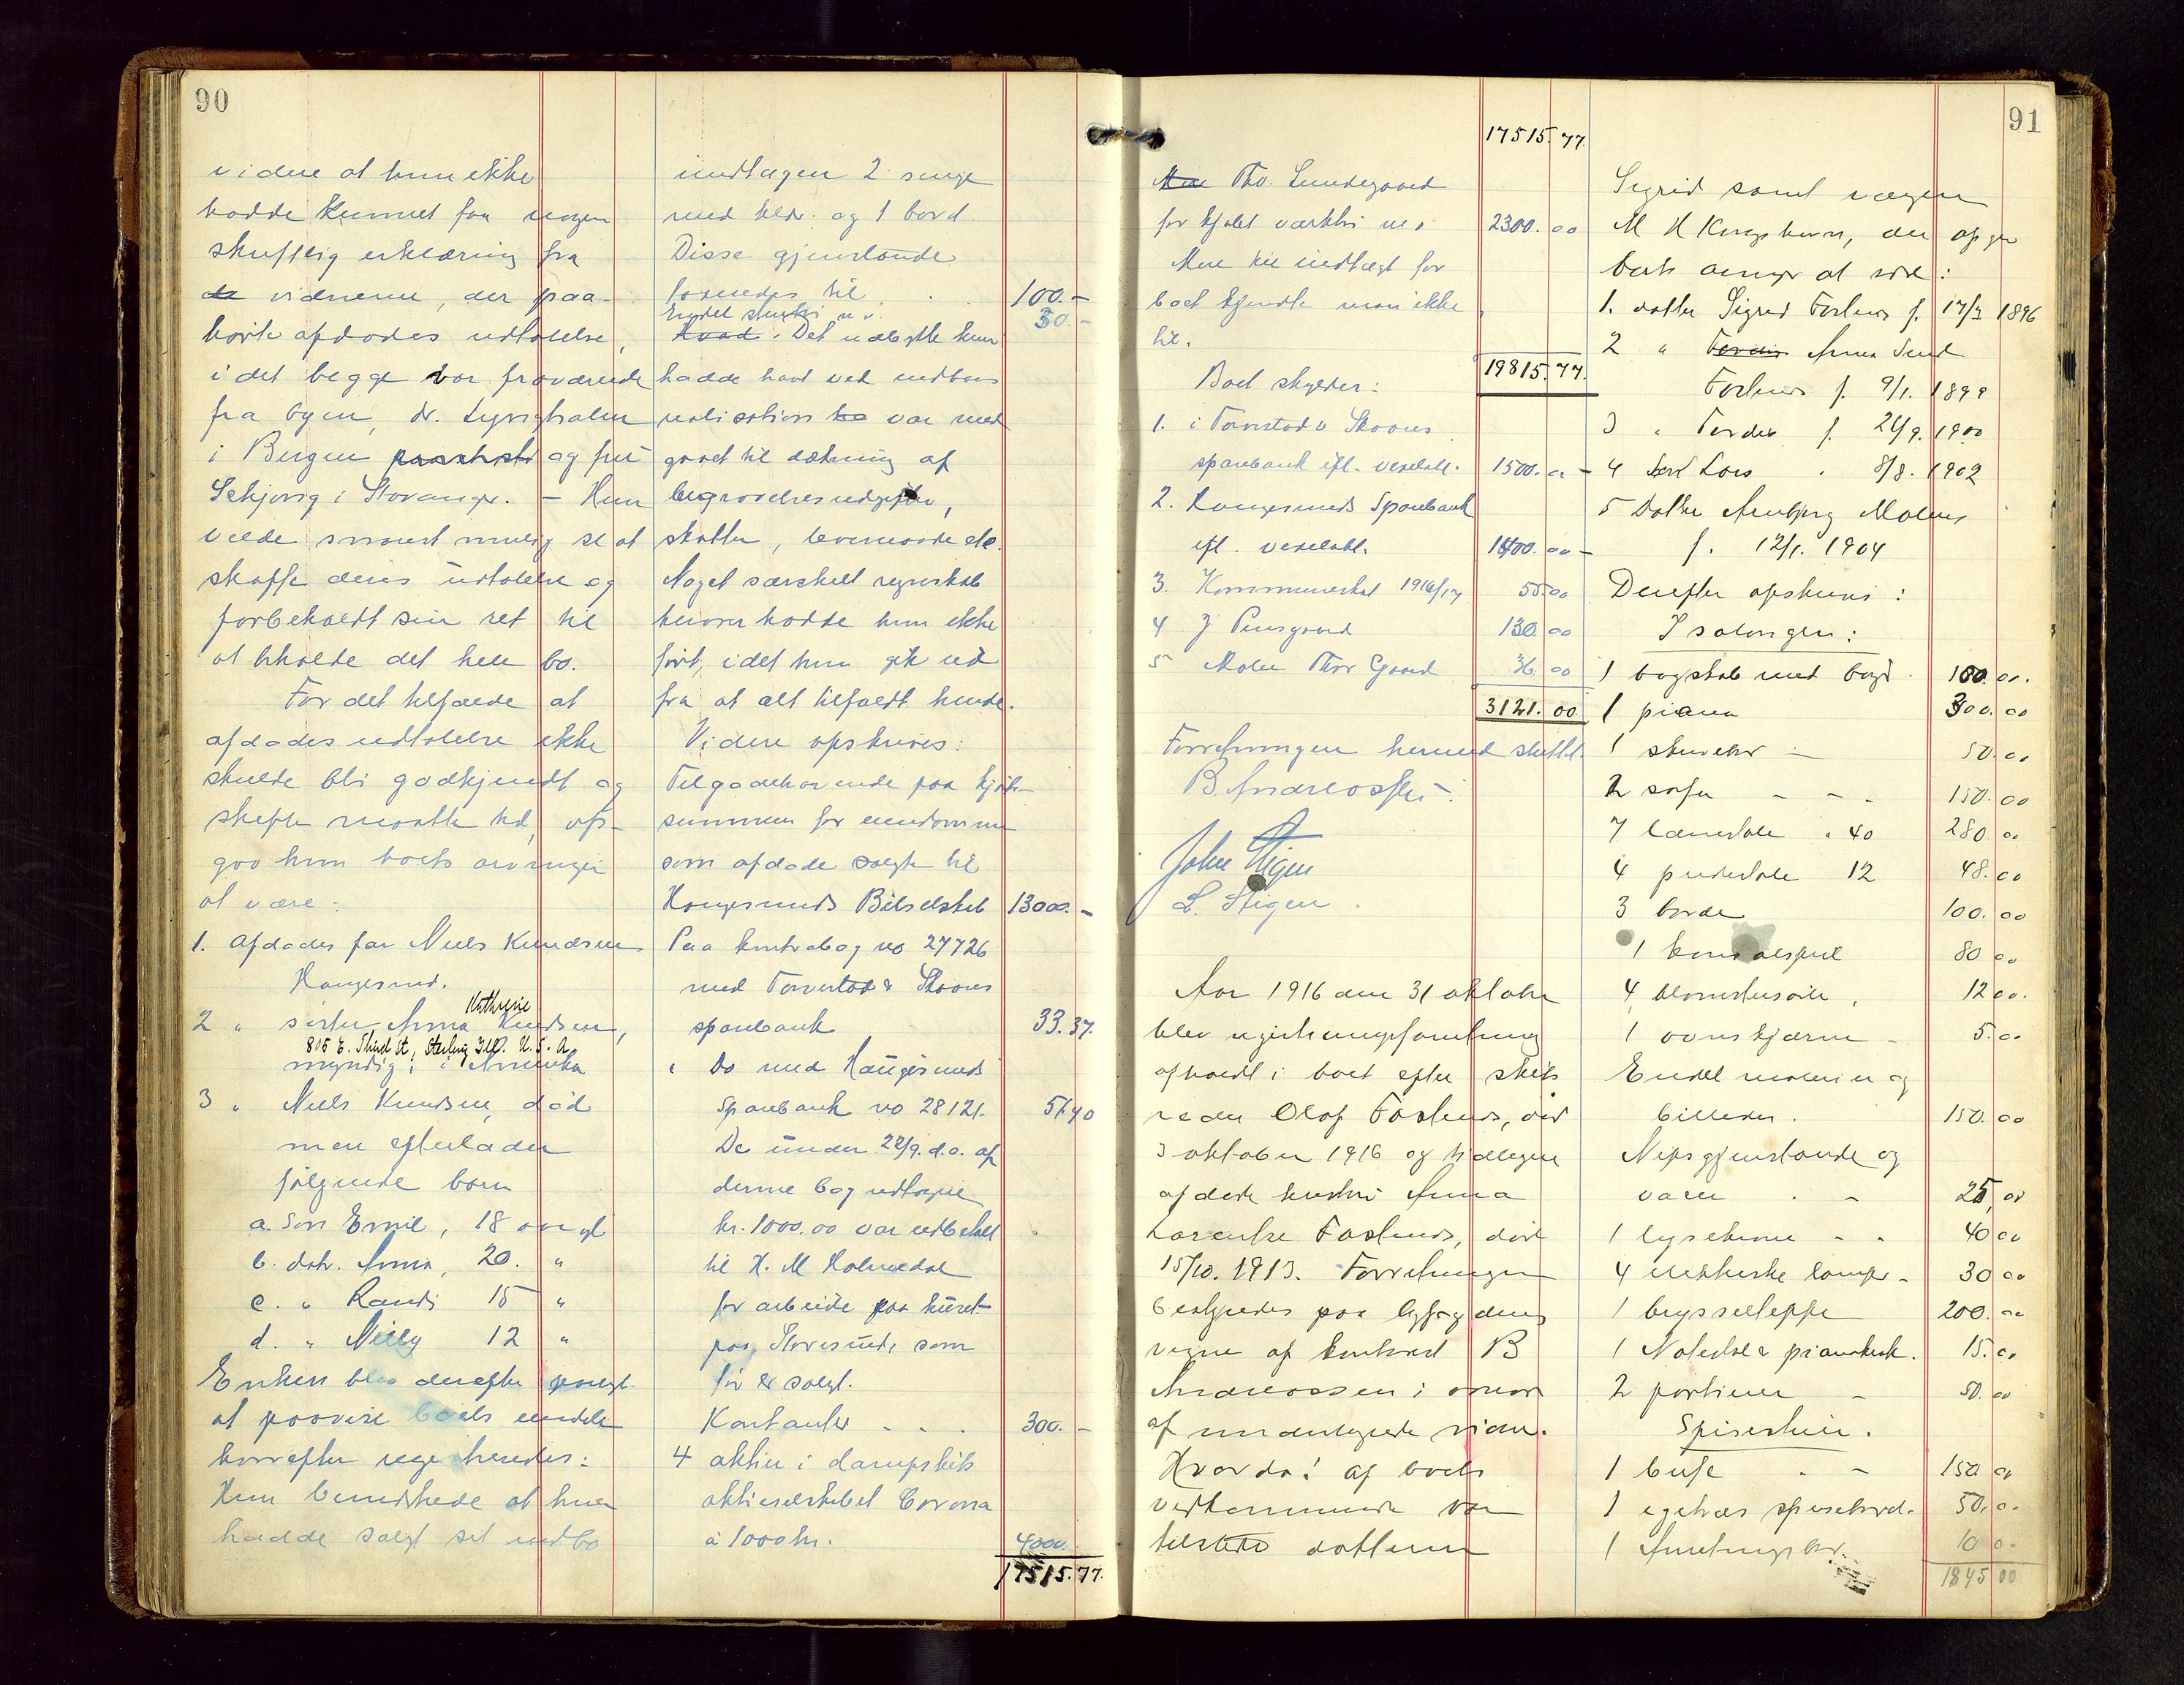 90
videre at hun ikke
hadde kunnet faa nogen
skriftlig erklæring fra
de vidnerne, der paa-
hørte afdødes udtalelse,
idet begge var fraværende
fra byen, dr. Lyngholm
i Bergen og frk
Schjørig i Stavanger. – Hun
vilde snarest mulig se at
skaffe deres udtalelse og
forbeholdt sin ret til
at beholde det hele bo.
For det tilfælde at
afdødes udtalelse ikke
skulde bli godkjendt og
skifte maatte til, op-
gav hun boets arvinger
at være:
1. afdødes far Niels Knudsen
Haugesund.
2 " søster Anna Kathrine Knudsen,
805 E. Third St, Sterling Ill. U. S. A.
myndig, i Amerika
3 " Niels Knudsen, død
men efterlader
følgende barn
a. søn Emil, 18 aar gl
b. datr. Anna, 20. "
c. " Randi 15 "
d. " Nelly 12 "
Enken blev derefter paalagt
at paavise boets eiendele
hvorefter registreredes:
Hun bemerkede at hun
hadde solgt sit indbo
undtagen 2 senge
med klær og 1 bord
Disse gjenstande
taxeredes til . . . 100.–
Endel smykker m. v. 30.–
Hvad. Det udbytte hun
hadde havt ved indboets
realisation ha var med
gaaet til dækning af
begravelsesudgifter,
skatter, leveomkostn. etc.
Noget særskilt regnskab
herover hadde hun ikke
ført, idet hun gik ud
fra at alt tilfaldt hende.
Videre opskreves:
Tilgodehavende paa kjøbe-
summen for eiendommen
som afdøde solgte til
Haugesunds Bilselskab 13000.–
Paa kontrabog no 27726
med Torvestad & Skaares
sparebank 33.37.
" Do med Haugesunds
Sparebank no 28121. 51.40
De under 22/9. d.a. af
denne bog udtagne
kr. 1000.00 var udbetalt
til H. M Holmedal
for arbeide paa huset
paa Storesund, som
før er solgt.
Kontanter . . . 300.–
4 aktier i dampskibs
aktieselskabet Corona
à 1000 kr. 4000.
17515.77.
91
17515.77.
Tho. Lundegaard
for kjøbt værktøi m. v. 2300.00
Mere til indtægt for
boet kjendte man ikke
til.
19815.77.
Boet skylder:
1. i Torvestad & Skaares
sparebank ifl. vexelobl. 1500.00 –
2. Haugesunds Sparebank
ifl. vexelobl. 1400.00 –
3. Kommuneskat 1916/17 55.00
4 J Pensgaard 130.00
5 Maler Thor Gaard 36.00
3121.00
Forretningen hermed sluttet.
B. Andreassen.
John Stigen
L. Stigen.
Aar 1916 den 31 oktober
blev registreringsforretning
afholdt i boet efter skibs
reder Olaf Fostenes, død
3 oktober 1916 og tidligere
afdøde hustru Anna
Laurentse Fostenes, død
15/10. 1913. Forretningen
bestyredes paa lagfogdens
vegne af kontorist B
Andreassen i nærvær
af undertegnede vidner.
Hvorda: af boets
vedkommende var
tilstede datteren
Sigrid samt vergen
M H Kongshavn, der opgav
boets arvinger at være:
1. datter Sigrid Fostenes f. 17/3 1896
2 " Anna
Fostenes f. 9/1. 1899
3 " Tordis f. 24/9. 1900
4 Lars . 8/8. 1902
5 Datter Arnbjørg Malene
f. 12/1. 1904
Derefter opskreves:
I salongen:
1 bogskab med bøger . 100.00.
1 piano 300.00
1 skrivebord – 50.00
2 sofa – – – 150.00
7 lænestole à 40 280 00
4 pidestaler 12 48.00
3 borde 100.00
1 konsolspeil 80 00
4 blomstersøiler . 12 00.
1 ovnskjærm – 5.00
Endel malerier og
billeder. 150.00
Nipsgjenstande og
varer . – 25,00
1 lysekrone – – 40 00
4 elektriske lamper – 30 00
1 brysselteppe 200.00
1 Notestol & pianokrak. 15.00
2 portierer – 50.00
Spisestue.
1 bufe . – 150 00
1 egetræs spisebord. 50.00
1 Anretningsbor. 10 0.
1845 00